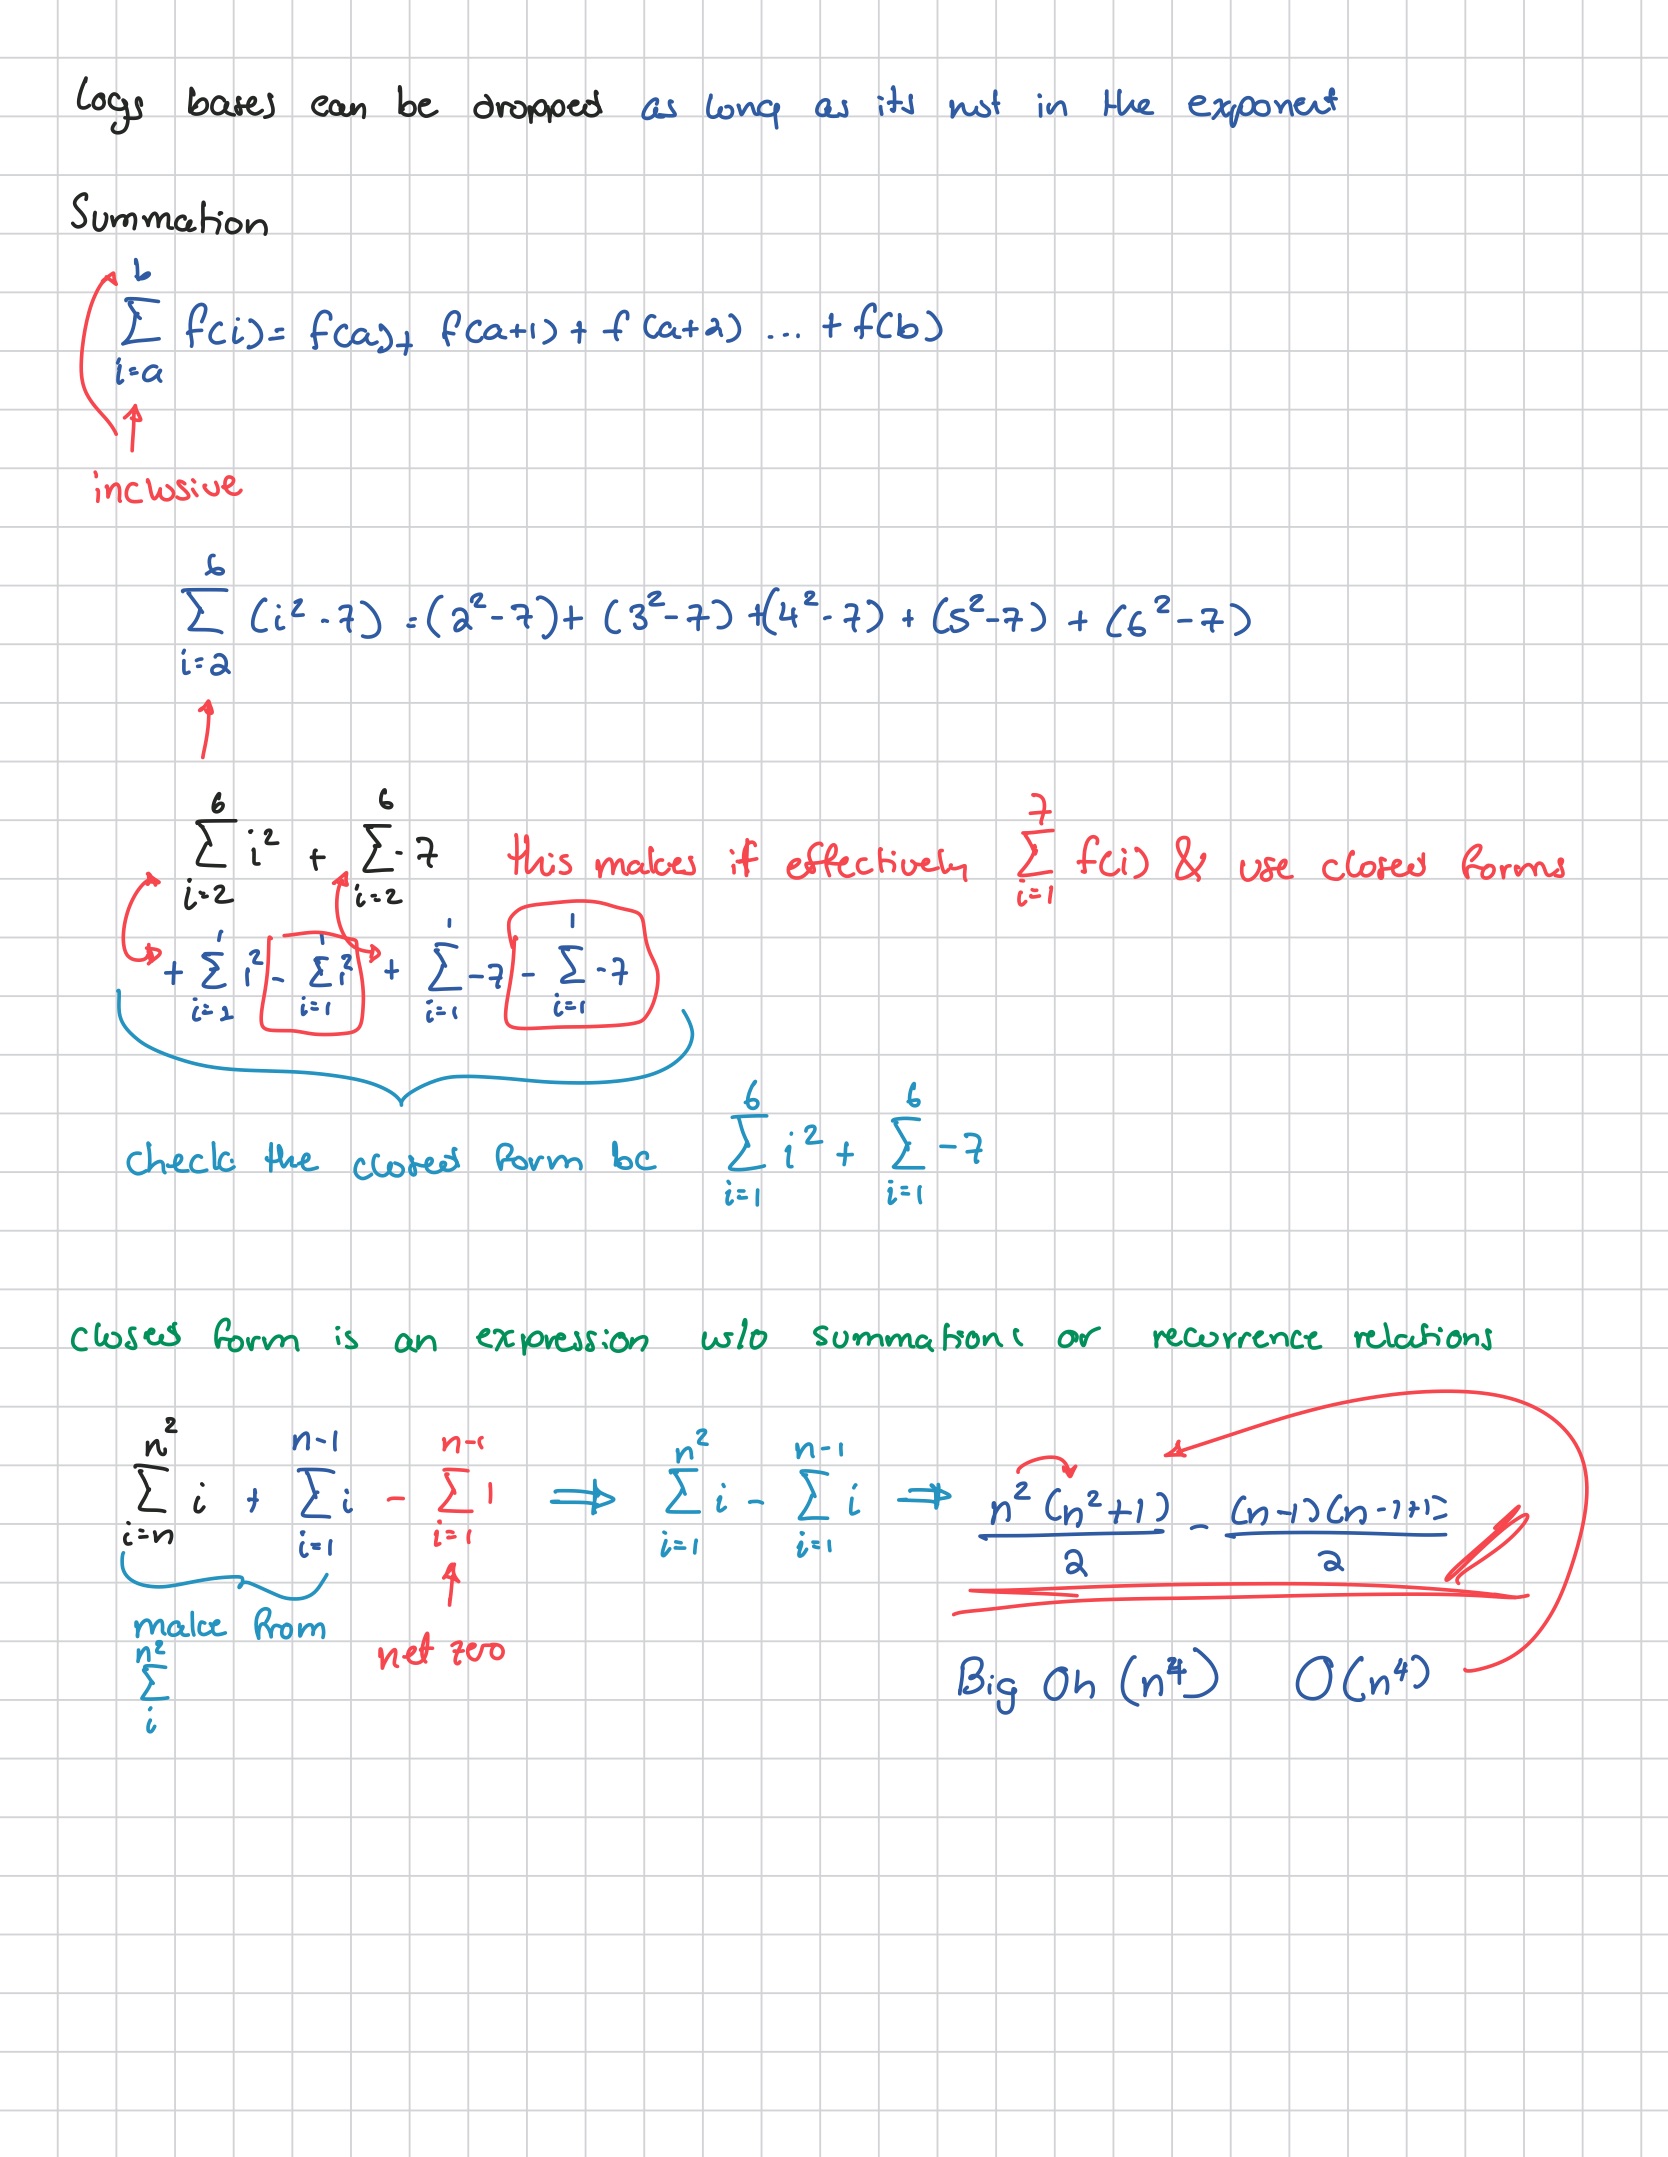 Logs bases can be dropped as long as its not in the exponent
Summation
b
∑ f(i) = f(a) + f(a+1) + f(a+2) ... + f(b)
i=a
inclusive
6
∑ (i² - 7) = (2² - 7) + (3² - 7) + (4² - 7) + (5² - 7) + (6² - 7)
i=2
6 6 7
∑ i² + ∑ -7 this makes it effectively ∑ f(i) & use closed forms
i=2 i=2 i=1
1 1 1 1
+ ∑ i² - ∑ i² + ∑ -7 - ∑ -7
i=1 i=1 i=1 i=1
6 6
check the closed form bc ∑ i² + ∑ -7
i=1 i=1
closed form is an expression w/o summations or recurrence relations
n² n-1 n-1 n² n-1
∑ i + ∑ i - ∑ 1 ⇒ ∑ i - ∑ i ⇒ n²(n²+1)/2 - (n-1)(n-1+1)/2
i=n i=1 i=1 i=1 i=1
make from
n²
∑
i
net zero
Big Oh (n⁴) O(n⁴)